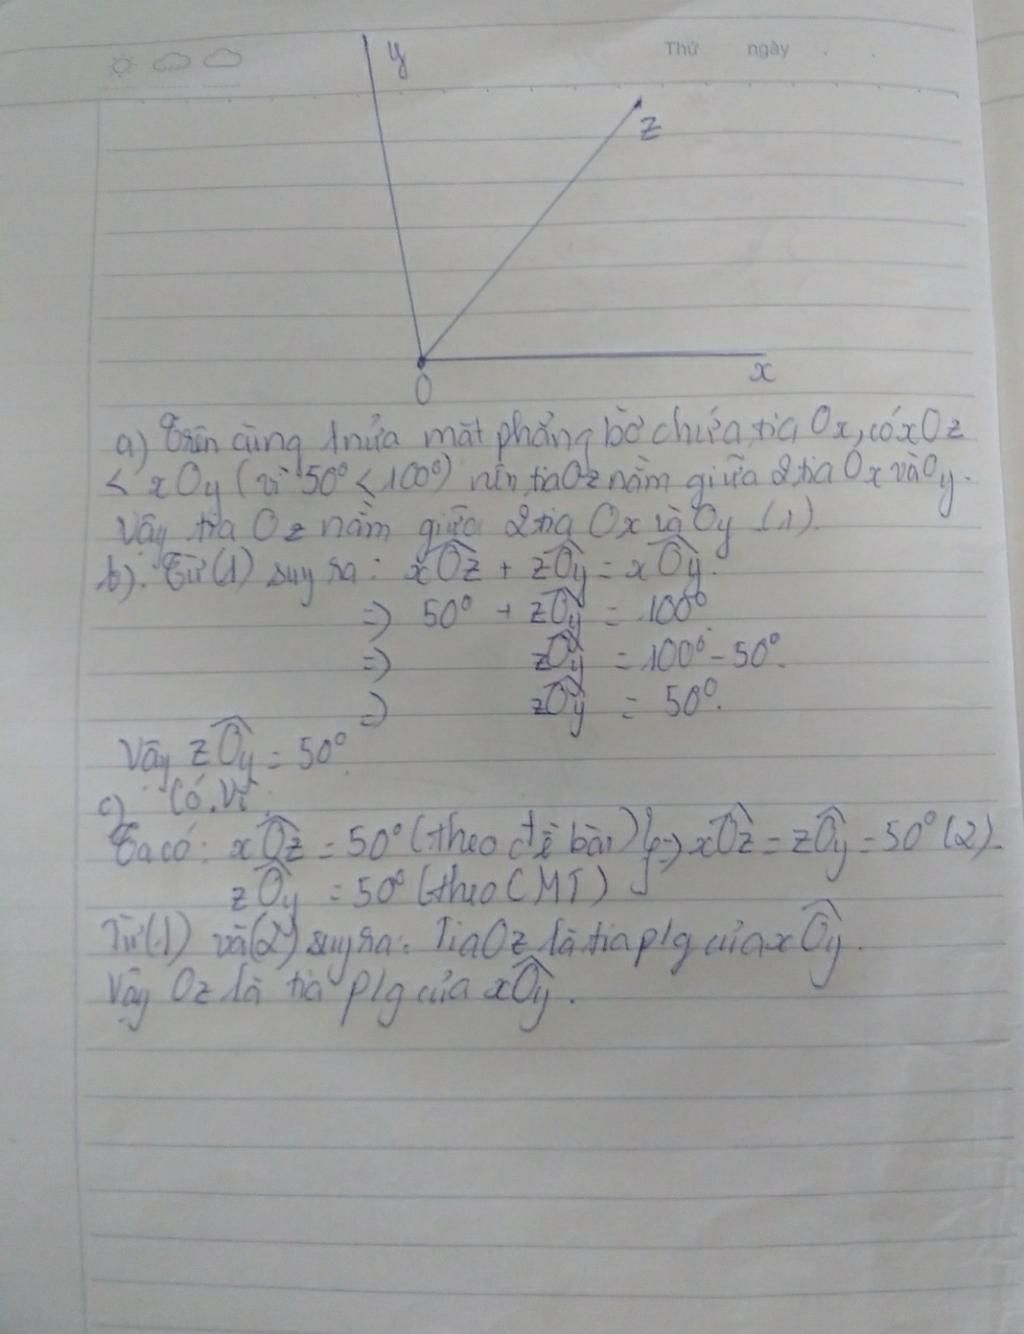 Thứ ngày
y
z
O
x
a) Trên cùng 1 nửa mặt phẳng bờ chứa tia Ox, có xOz
< xOy (vì 50° < 100°) nên tia Oz nằm giữa 2 tia Ox và Oy.
Vậy tia Oz nằm giữa 2 tia Ox và Oy (1).
b). Từ (1) suy ra: xOz + zOy = xOy.
=> 50° + zOy = 100°
=> zOy = 100° - 50°.
=> zOy = 50°.
Vậy zOy = 50°.
c) Có. Vì:
Ta có: xOz = 50° (theo đề bài) } => xOz = zOy = 50° (2).
zOy = 50° (theo CMT)
Từ (1) và (2) suy ra: Tia Oz là tia p/g của xOy.
Vậy Oz là tia p/g của xOy.